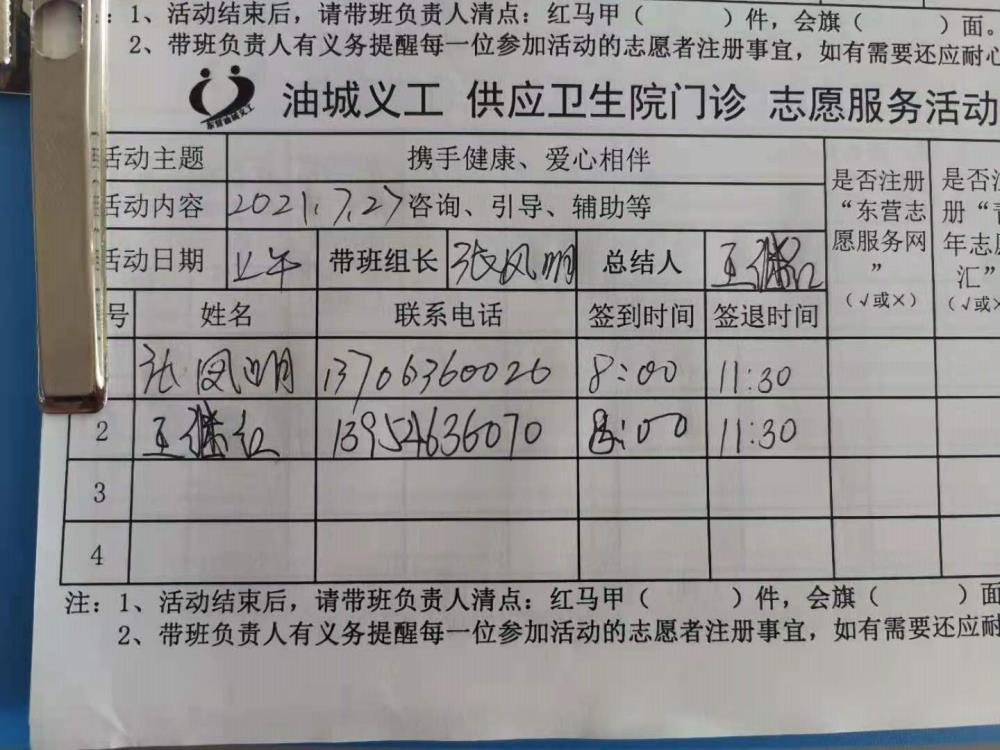 ：1、活动结束后，请带班负责人清点：红马甲（　　）件，会旗（　　）面。
2、带班负责人有义务提醒每一位参加活动的志愿者注册事宜，如有需要还应耐心
东营油城义工
油城义工 供应卫生院门诊 志愿服务活动
活动主题 携手健康、爱心相伴 是否注册“东营志愿服务网”（√或×） 是否注册“青年志愿汇”（√或×
活动内容 2021.7.27 咨询、引导、辅助等
活动日期 上午 带班组长 张凤明 总结人 王继红
号 姓名 联系电话 签到时间 签退时间
张凤明 13706360026 8:00 11:30
2 王继红 13954636070 8:00 11:30
3
4
注：1、活动结束后，请带班负责人清点：红马甲（　　）件，会旗（　　）面
2、带班负责人有义务提醒每一位参加活动的志愿者注册事宜，如有需要还应耐